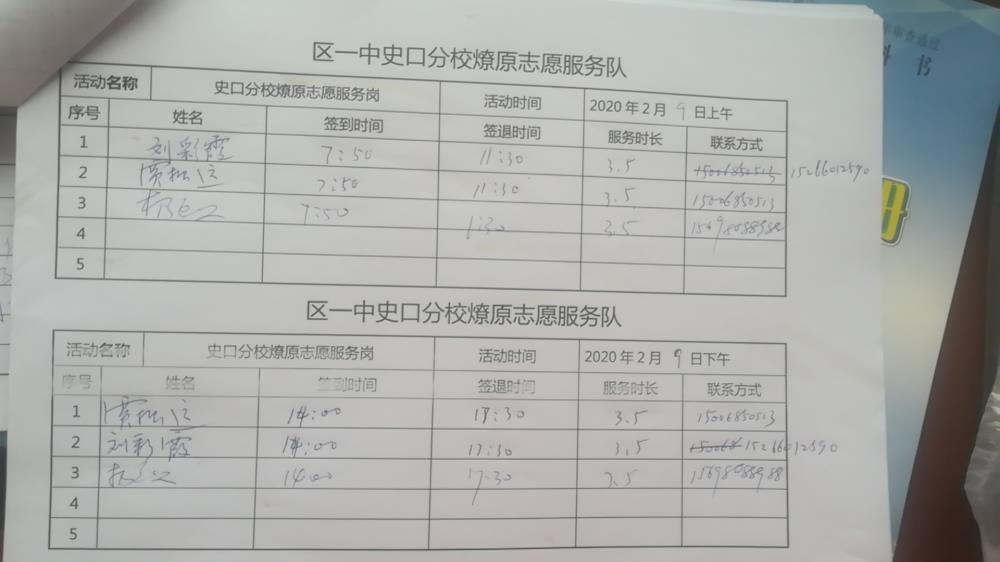 年审查通过
科 书
区一中史口分校燎原志愿服务队
活动名称 史口分校燎原志愿服务岗 活动时间 2020年2月9日上午
序号 姓名 签到时间 签退时间 服务时长 联系方式
1 刘彩霞 7:50 11:30 3.5 15006850513 15266012590
2 7:50 11:30 3.5 15006850513
3 7:50 1:30 3.5
4
5
区一中史口分校燎原志愿服务队
活动名称 史口分校燎原志愿服务岗 活动时间 2020年2月9日下午
序号 姓名 签到时间 签退时间 服务时长 联系方式
1 14:00 17:30 3.5 15006850513
2 刘彩霞 14:00 17:30 3.5 15266012590
3 14:00 17:30 3.5
4
5